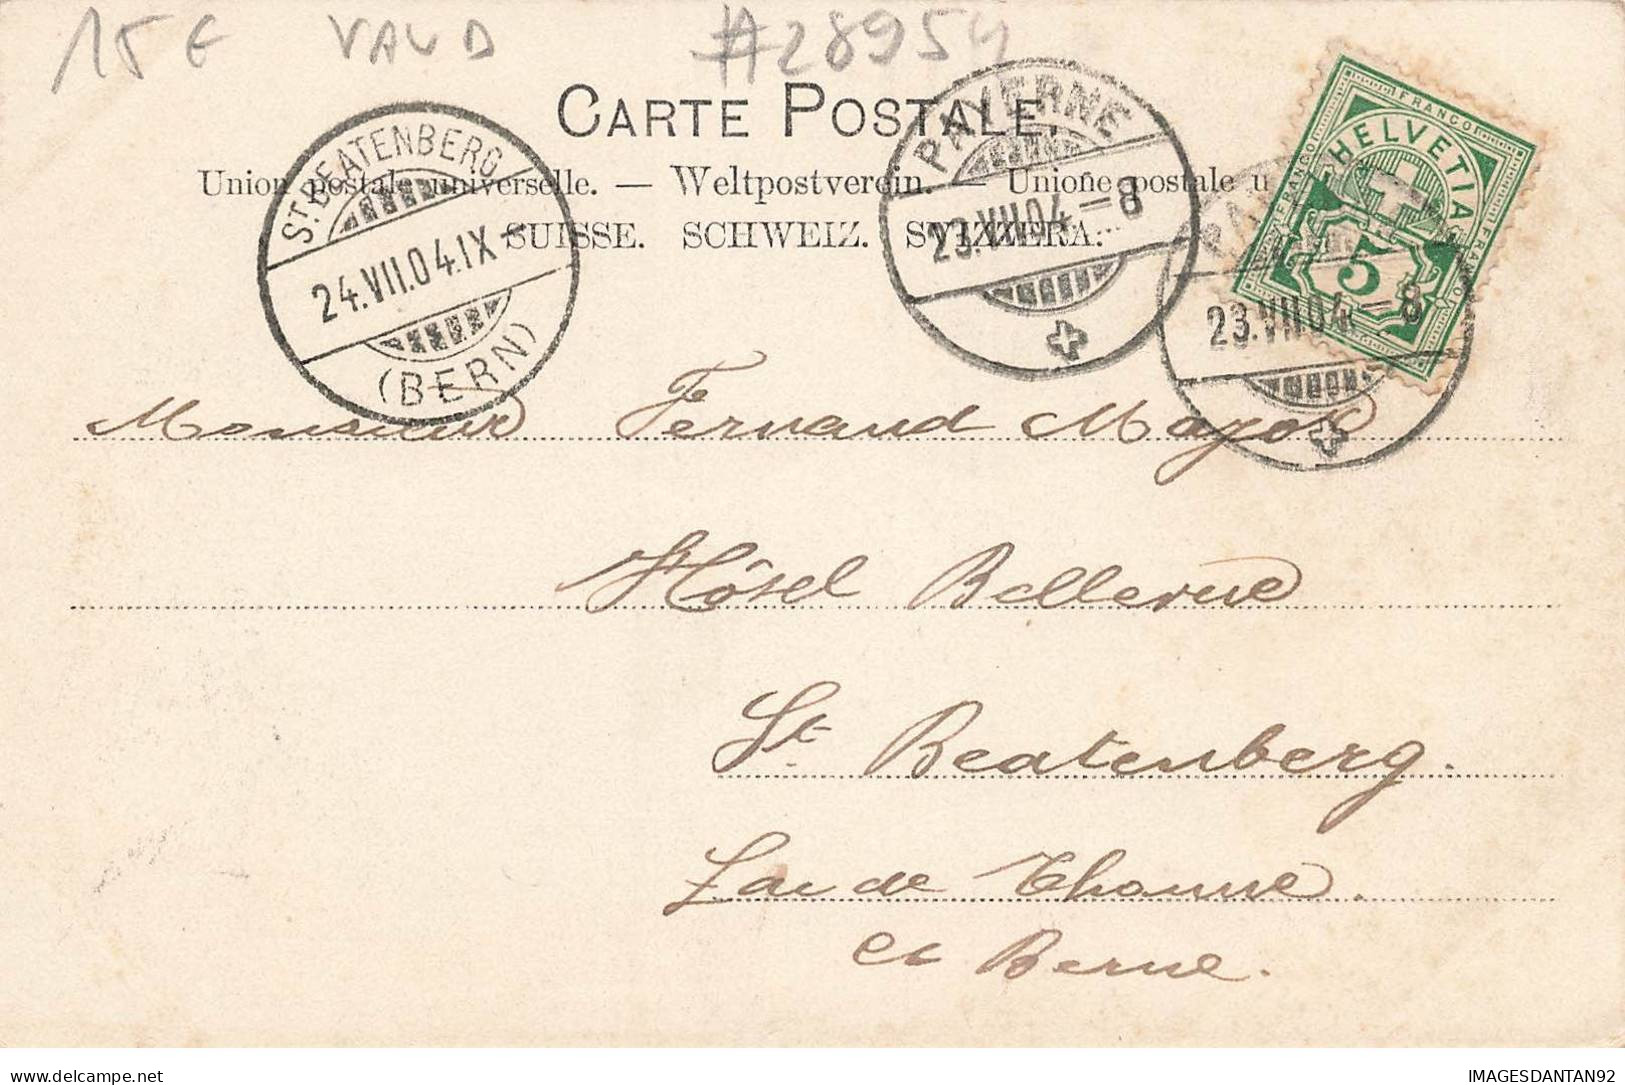 15 € VAUD #28954
CARTE POSTALE.
Union postale universelle. — Weltpostverein. — Unione postale u
SUISSE. SCHWEIZ. SVIZZERA.
ST. BEATENBERG
24.VII.04.IX–
(BERN)
PAYERNE
23.VII.04.–8
23.VII.04.–8
FRANCO FRANCO FRANCO
HELVETIA
5
Monsieur Fernand Mayor
Hôtel Bellevue
St Beatenberg.
Lac de Thoune.
Ct Berne.
IMAGESDANTAN92